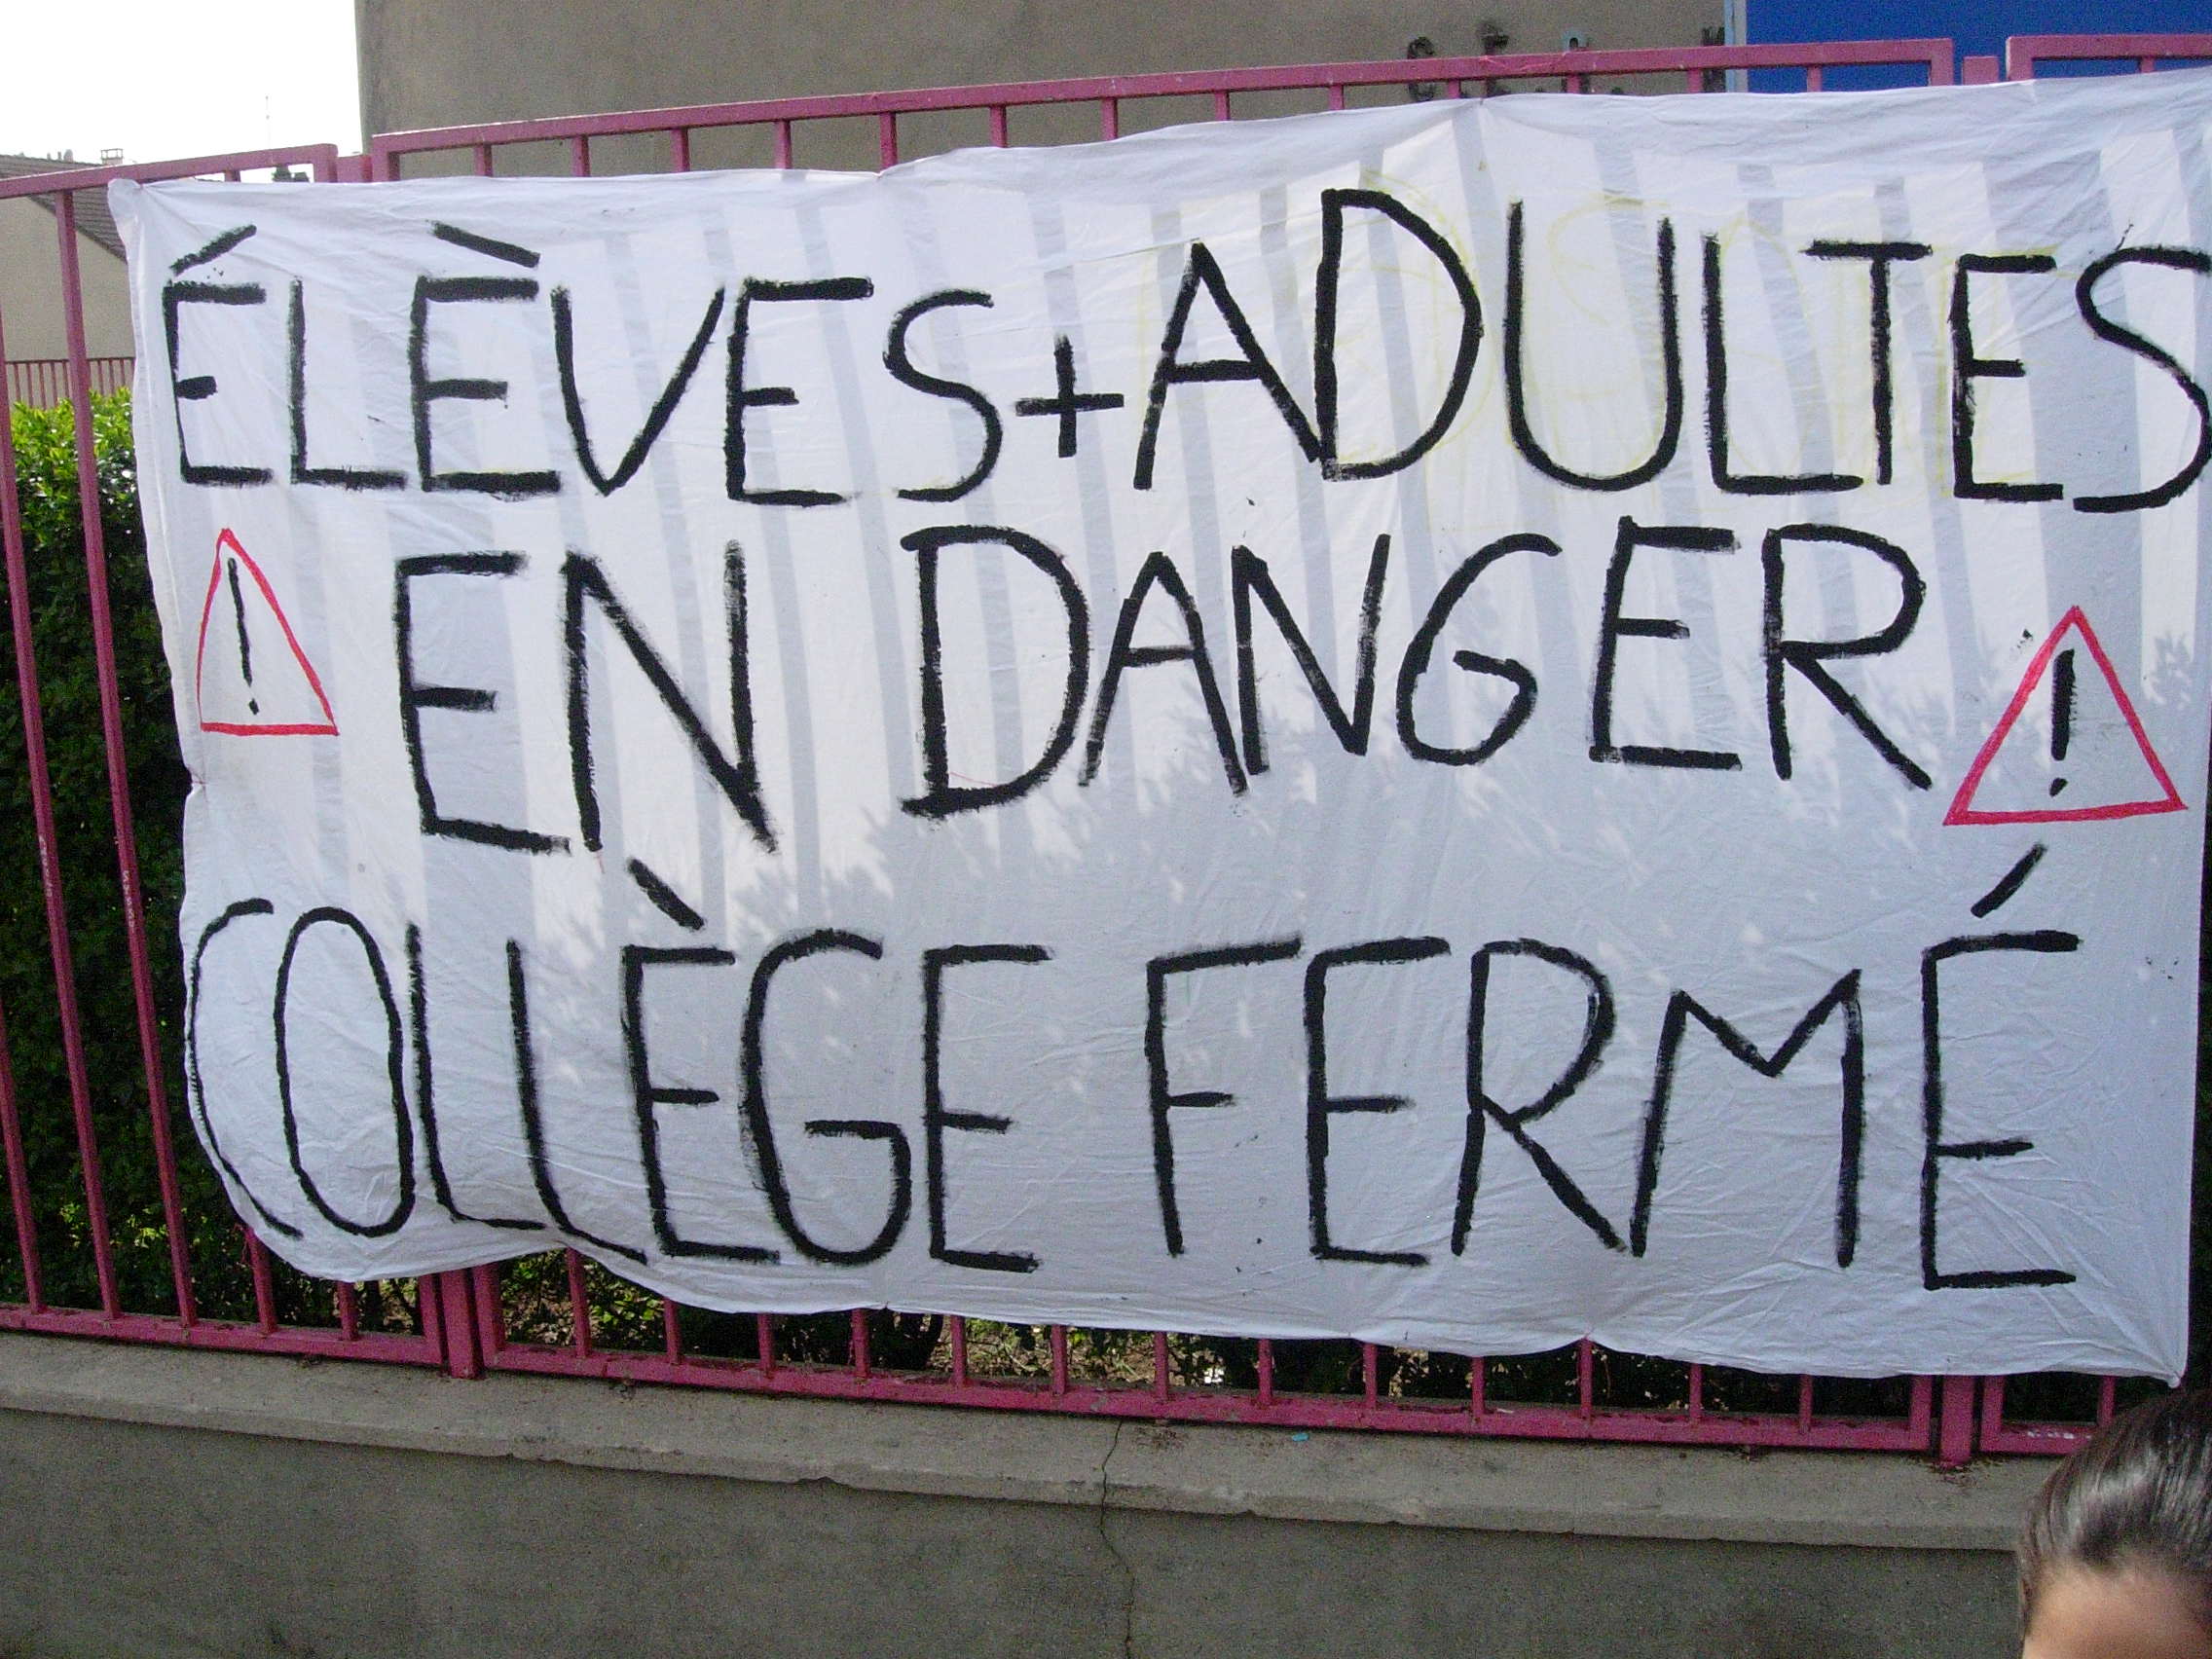 ÉLÈVES+ADULTES
! EN DANGER !
COLLÈGE FERMÉ